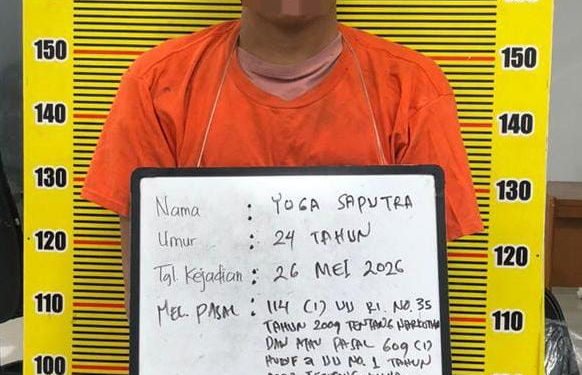 150 150
140 140
130 130
120 120
110 110
100 100
Nama : YOGA SAPUTRA
Umur : 24 TAHUN
Tgl. Kejadian : 26 MEI 2026
MEL. PASAL : 114 (1) UU RI. NO. 35
TAHUN 2009 TENTANG NARKOTIKA
DAN ATAU PASAL 609 (1)
HURUF a UU NO. 1 TAHUN
TENTANG